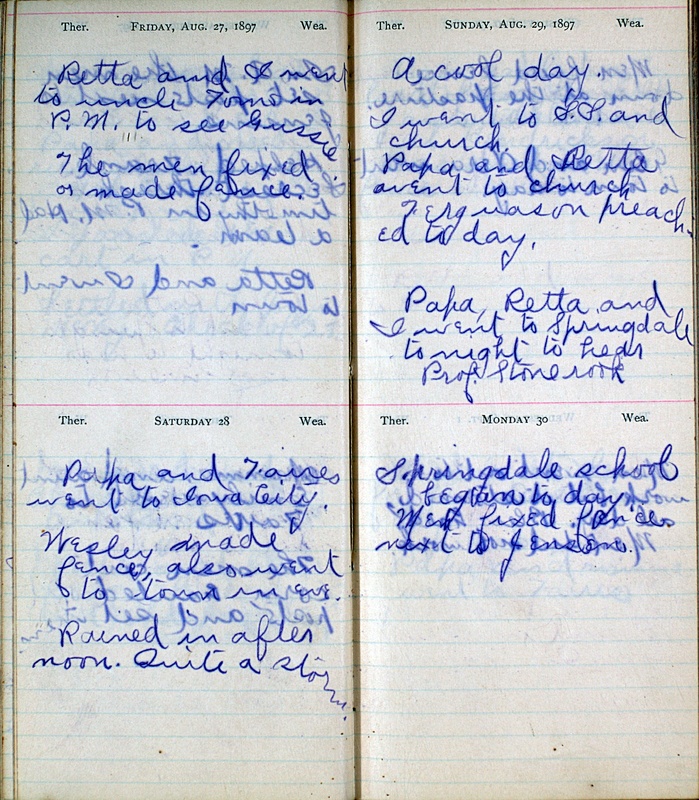 Ther. FRIDAY, AUG. 27, 1897 Wea.
Retta and I went
to uncle Tom's in
P.M. to see Gussie.
The men fixed
or made fence.
Ther. SATURDAY 28 Wea.
Papa and
went to Iowa City.
Wesley made
fence, also went
to town in eve.
Rained in after
noon. Quite a storm.
Ther. SUNDAY, AUG. 29, 1897 Wea.
A cool day.
I went to S.S. and
church.
Papa and Retta
went to church
Ferguason preach-
ed to day.
Papa, Retta and
I went to Springdale
to night to hear
Prof. Stonerook
Ther. MONDAY 30 Wea.
Springdale school
began to day.
Men fixed fences
next to Jenston.